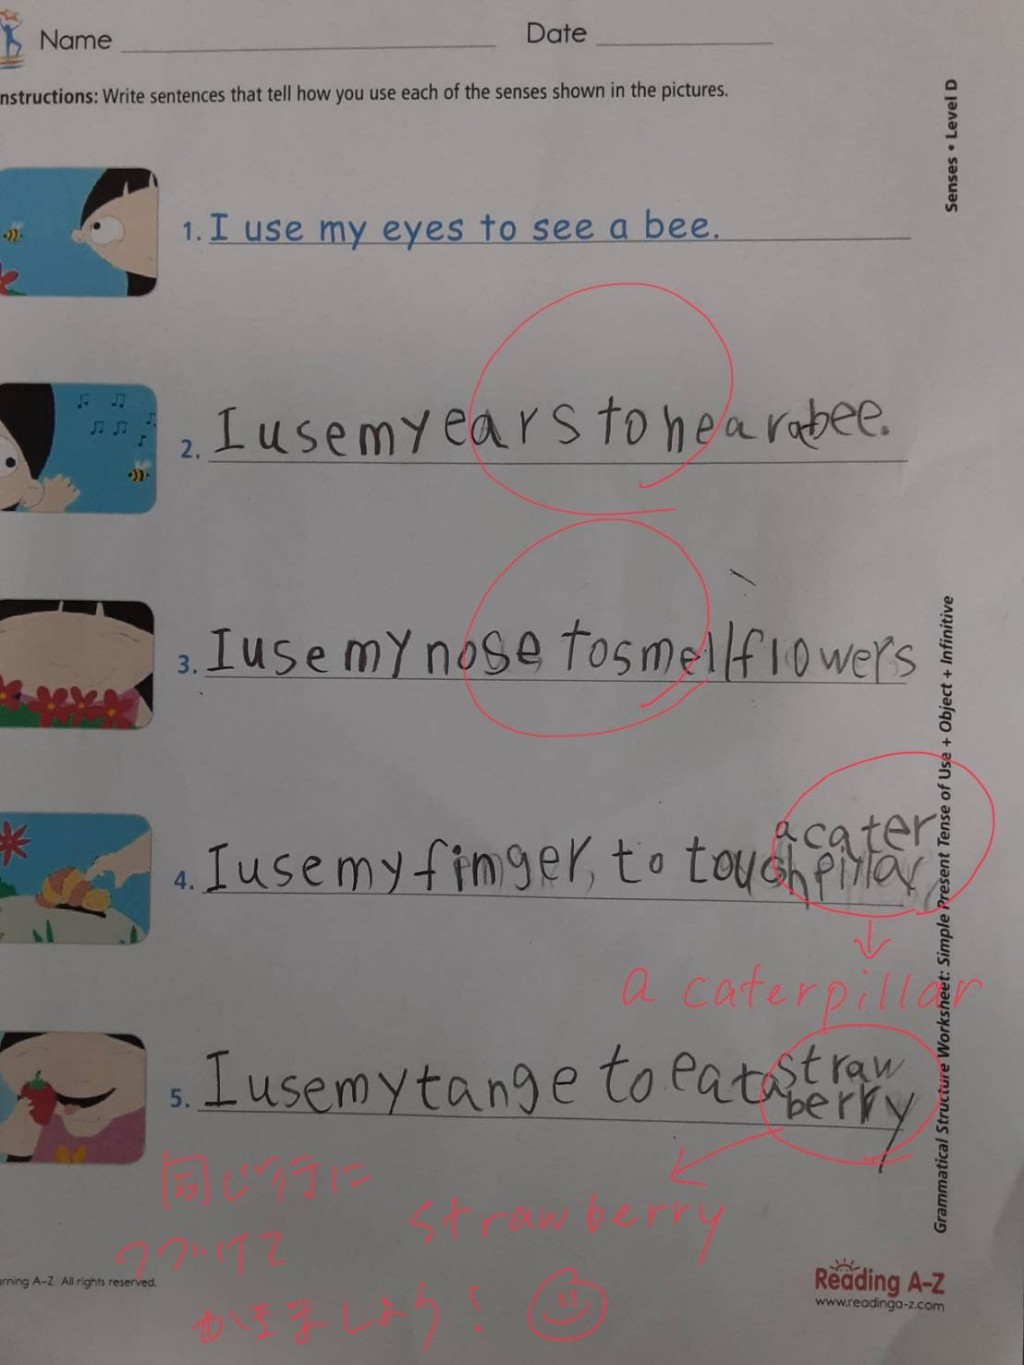 Name
Date
nstructions: Write sentences that tell how you use each of the senses shown in the pictures.
Senses • Level D
1. I use my eyes to see a bee.
2. I use my ears to hear a bee.
3. I use my nose to smell flowers
4. I use my finger, to touch a cater
pillar
a caterpillar
5. I use my tange to eat a straw
berry
strawberry
同じ行に
つづけて
かきましょう!
Grammatical Structure Worksheet: Simple Present Tense of Use + Object + Infinitive
rning A–Z All rights reserved.
Reading A-Z
www.readinga-z.com